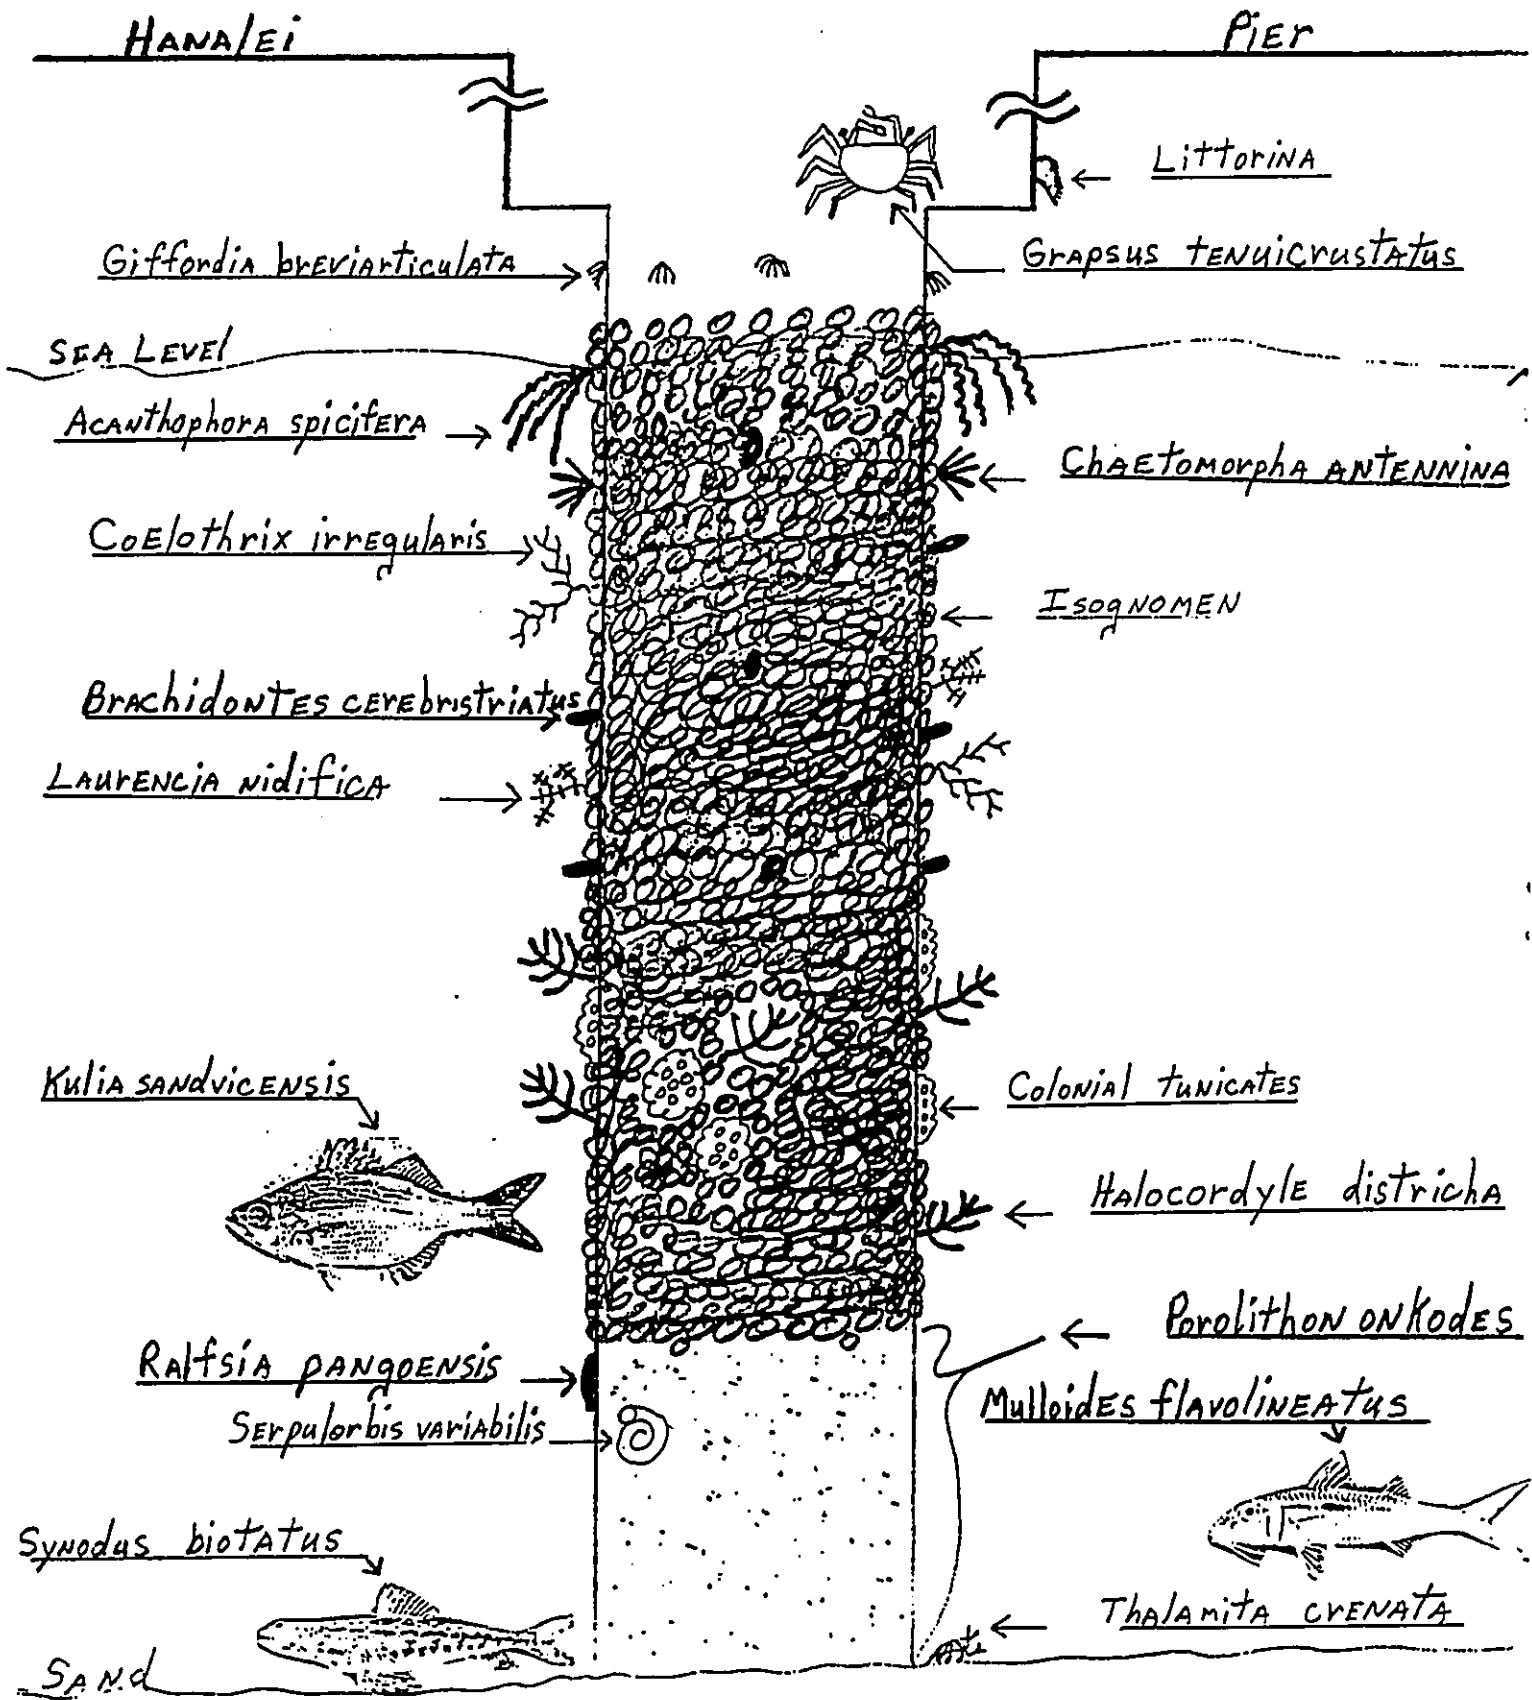 Hanalei Pier
Littorina
Giffordia breviarticulata
Grapsus tenuicrustatus
Sea Level
Acanthophora spicifera
Chaetomorpha antennina
Coelothrix irregularis
Isognomen
Brachidontes cerebristriatus
Laurencia nidifica
Kulia sandvicensis
Colonial tunicates
Halocordyle districha
Porolithon onkodes
Ralfsia pangoensis
Mulloides flavolineatus
Serpulorbis variabilis
Synodus biotatus
Thalamita crenata
Sand